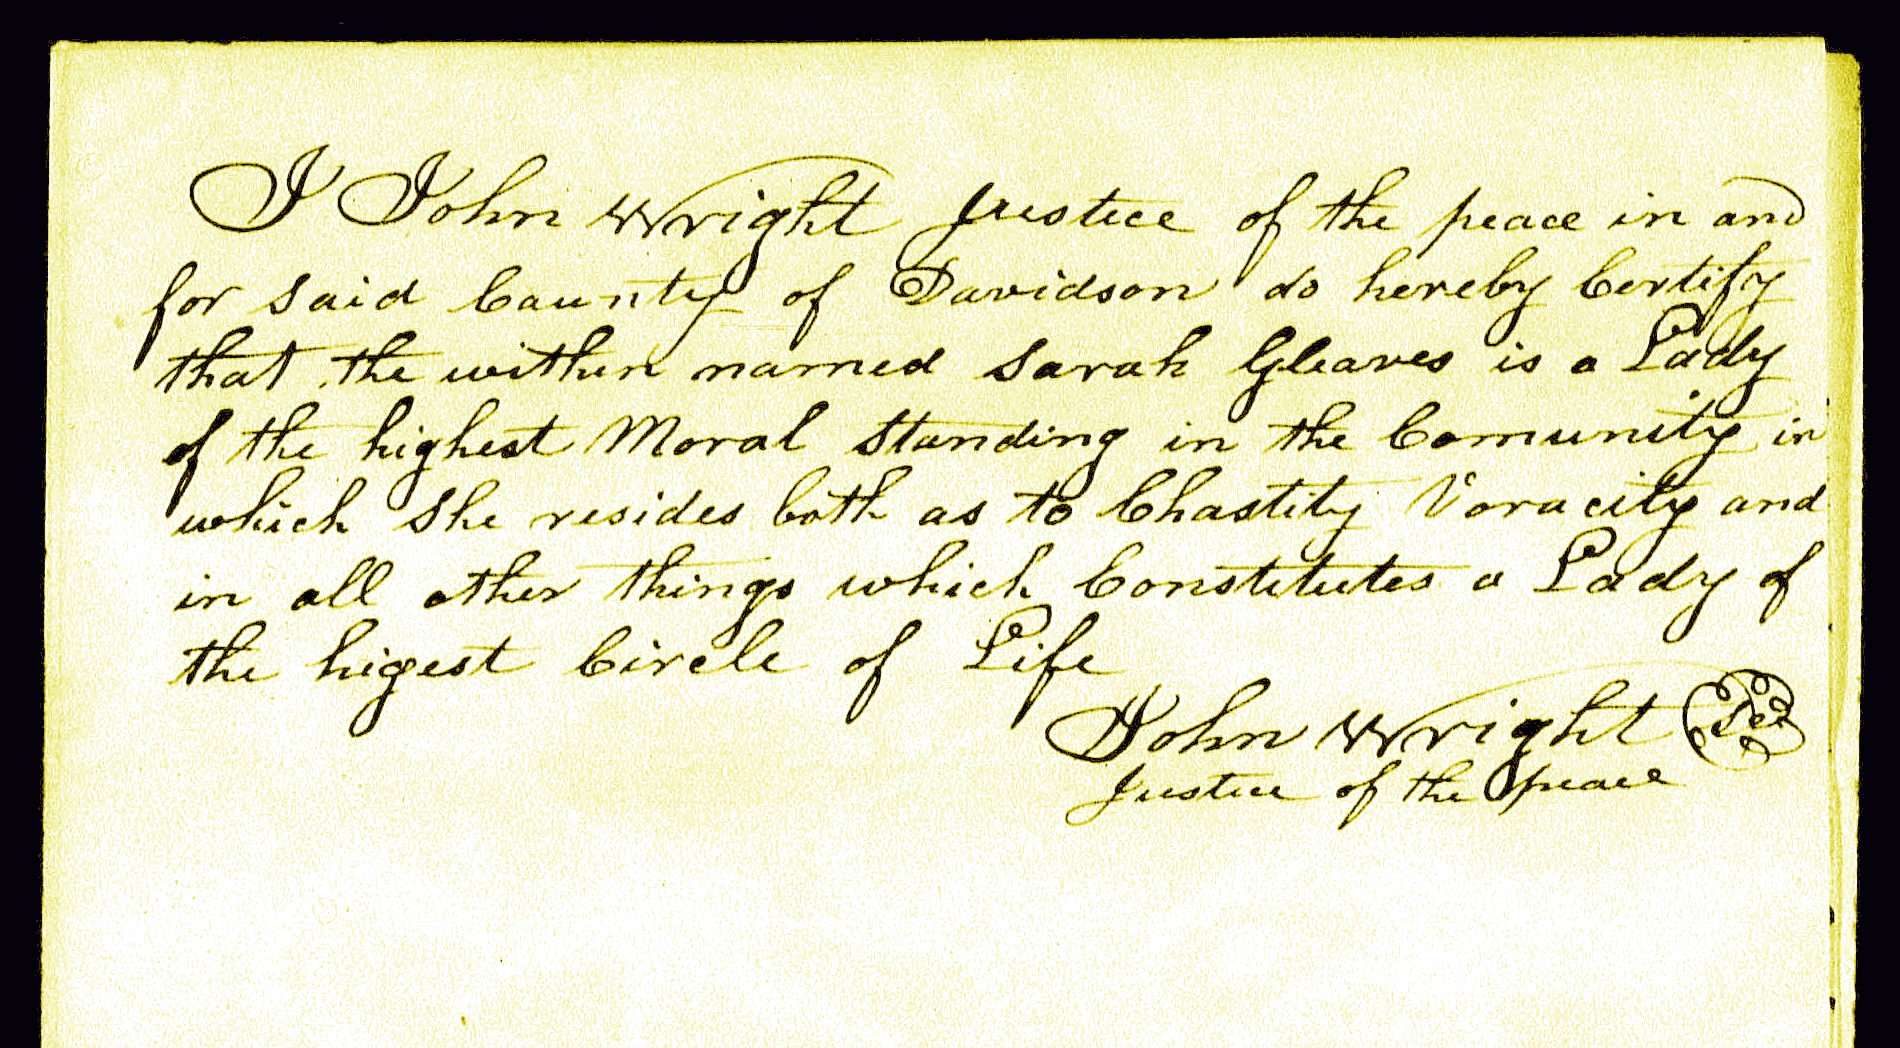 I John Wright Justice of the peace in and
for said County of Davidson do hereby Certify
that the within named Sarah Gleaves is a Lady
of the highest Moral Standing in the Comunity in
which She resides both as to Chastity Voracity and
in all other things which Constitutes a Lady of
the higest Circle of Life
John Wright
Justice of the peace